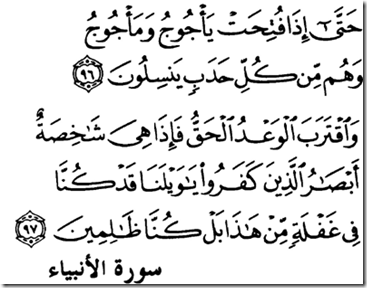 حَتَّىٰٓ إِذَا فُتِحَتْ يَأْجُوجُ وَمَأْجُوجُ
وَهُم مِّن كُلِّ حَدَبٍ يَنسِلُونَ ٩٦
وَاقْتَرَبَ الْوَعْدُ الْحَقُّ فَإِذَا هِىَ شَاخِصَةٌ
أَبْصَارُ الَّذِينَ كَفَرُوا يَاوَيْلَنَا قَدْ كُنَّا
فِى غَفْلَةٍ مِّنْ هَاذَا بَلْ كُنَّا ظَالِمِينَ ٩٧
سورة الأنبياء